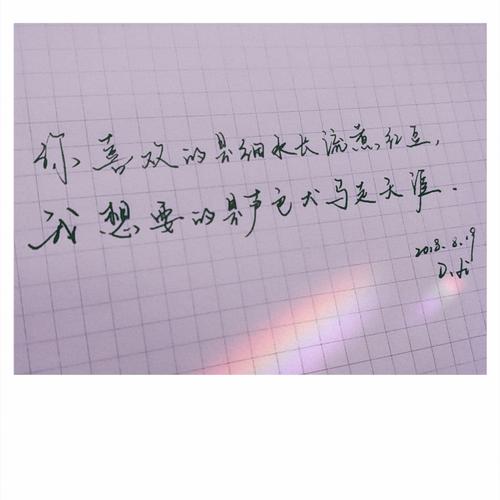 你喜欢的是细水长流煮红豆，
我想要的是声色犬马走天涯．
2018.8.19